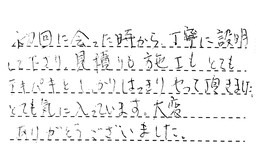 初回に会った時から、丁寧に説明
して下さり、見積りも施工もとても
テキパキとしっかりはっきりやって頂きました
とても気に入っています。大変
ありがとうございました。